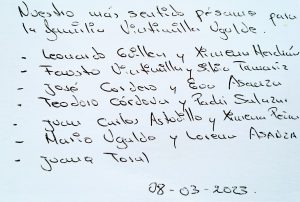 Nuestro más sentido pésame para
la familia Vintimilla Ugalde.
- Leonardo Guillen y Ximena
- Fausto Vintimilla y Silvia Tamariz
- José Cordero y Eva Abanza
- Teodoro Córdova y Salazar
- Juan Carlos Astudillo y Ximena
- Mario Ugalde y Lorena
- Juana Toral
08-03-2023.